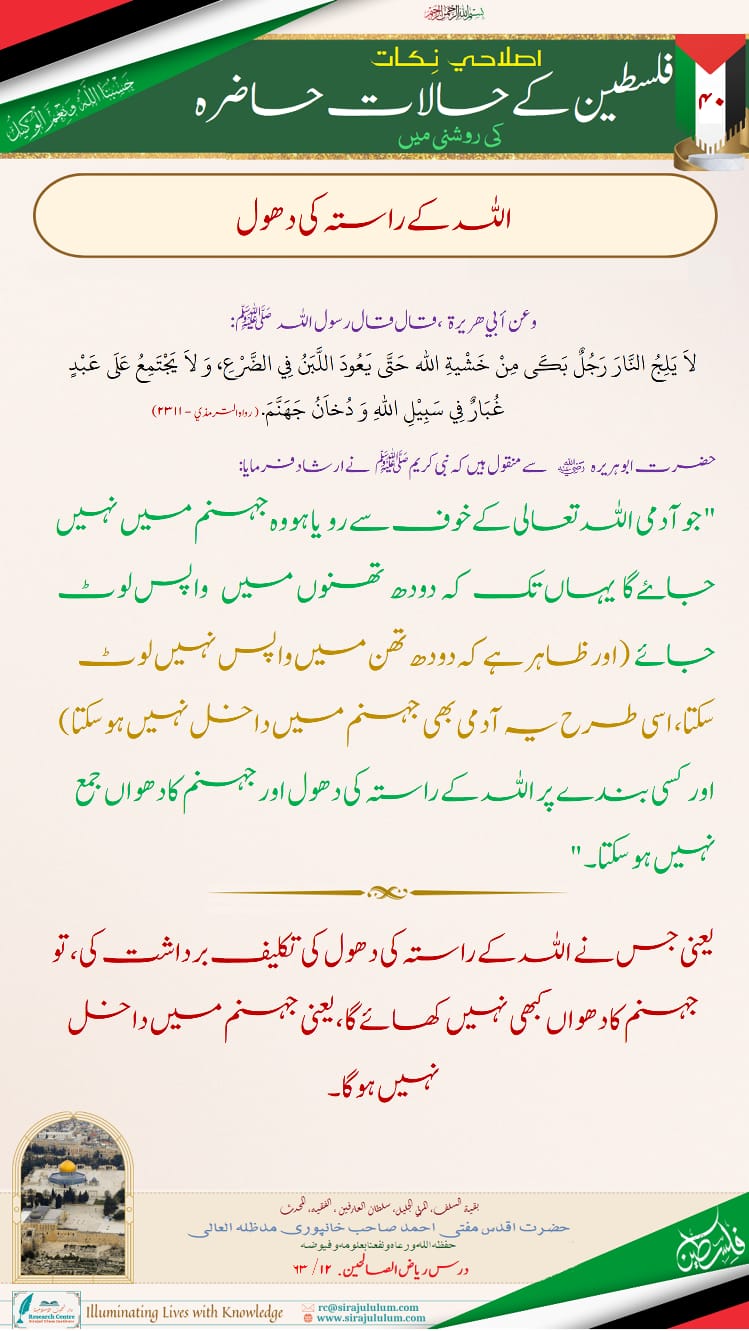 بسم الله الرحمن الرحيم
اصلاحي نِكات
فلسطین کے حالات حاضرہ
کی روشنی میں
۴۰
حَسْبُنَا اللَّهُ وَنِعْمَ الْوَكِيْلُ
اللہ کے راستہ کی دھول
وعن أبي هريرة ،قال قال رسول اللہ ﷺ:
لاَ يَلِجُ النَّارَ رَجُلٌ بَكَى مِنْ خَشْيةِ الله حَتَّى يَعُودَ اللَّبَنُ فِي الضَّرْعِ، وَ لاَ يَجْتَمِعُ عَلَى عَبْدٍ
غُبَارٌ فِي سَبِيْلِ اللهِ وَ دُخاَنُ جَهَنَّمَ. (رواہ الترمذي – ۲۳۱۱)
حضرت ابو ہریرہ رضی اللہ عنہ سے منقول ہیں کہ نبی کریم ﷺ نے ارشاد فرمایا:
"جو آدمی اللہ تعالی کے خوف سے رویا ہو وہ جہنم میں نہیں
جائے گا یہاں تک کہ دودھ تھنوں میں واپس لوٹ
جائے (اور ظاہر ہے کہ دودھ تھن میں واپس نہیں لوٹ
سکتا، اسی طرح یہ آدمی بھی جہنم میں داخل نہیں ہو سکتا)
اور کسی بندے پر اللہ کے راستہ کی دھول اور جہنم کا دھواں جمع
نہیں ہو سکتا۔"
یعنی جس نے اللہ کے راستہ کی دھول کی تکلیف برداشت کی، تو
جہنم کا دھواں کبھی نہیں کھائے گا، یعنی جہنم میں داخل
نہیں ہو گا۔
بقیة السلف، المربي الجلیل، سلطان العارفین، الفقیہ، المحدث
حضرت اقدس مفتی احمد صاحب خانپوری مدظلہ العالی
حفظه الله ورعاه ونفعنا بعلومه وفيوضه
درس ریاض الصالحین۔ ۱۲ / ۶۳
فلسطین
Research Centre
Illuminating Lives with Knowledge
rc@sirajululum.com
www.sirajululum.com